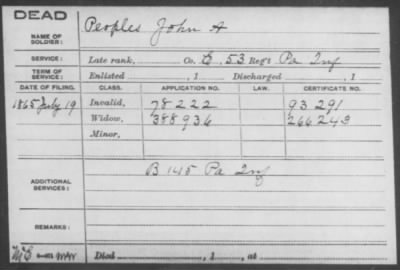 DEAD
NAME OF SOLDIER: Peoples John A
SERVICE: Late rank, Co. E. 53 Reg't Pa Inf
TERM OF SERVICE: Enlisted , 1 Discharged , 1
DATE OF FILING. CLASS. APPLICATION NO. LAW. CERTIFICATE NO.
1865 July 19 Invalid, 78222 93291
Widow, 388936 266243
Minor,
ADDITIONAL SERVICES: B 145 Pa Inf
REMARKS:
Died , 1 , at